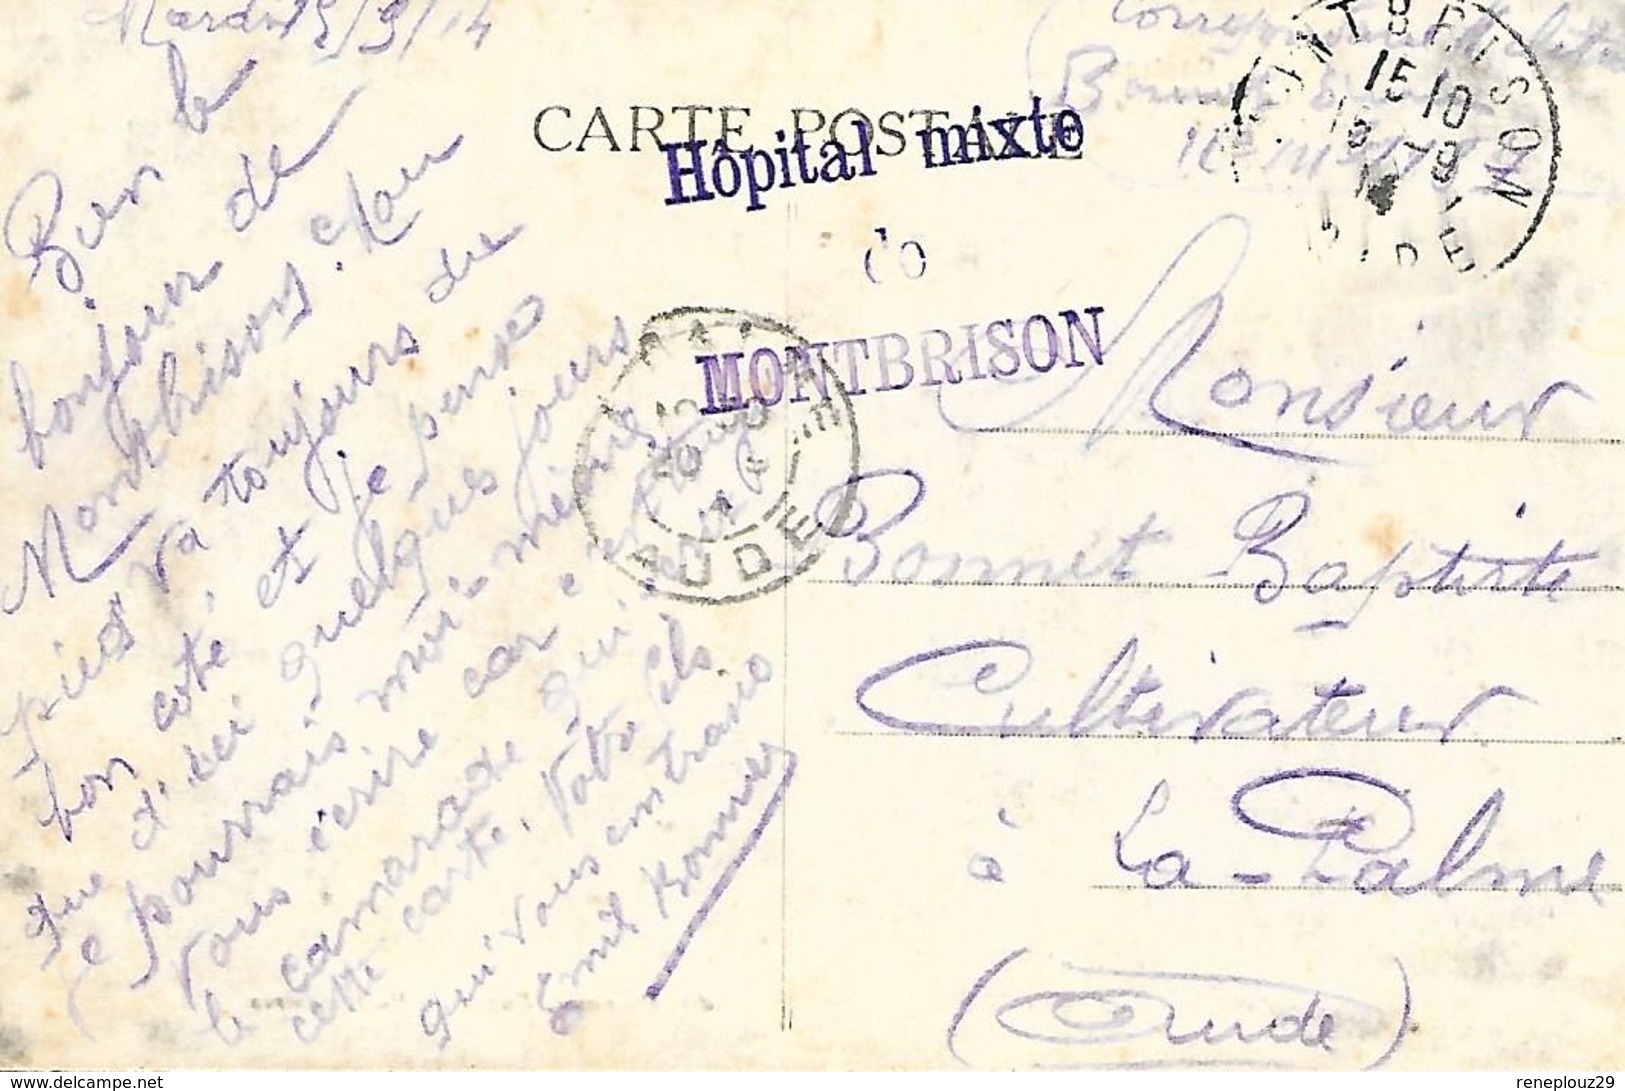 Mardi 15/9/14
Bien le
bonjour de
Montbrison. Mon
pied va toujours de
bon coté, et je pense
que d'ici quelques jours
je pourrais moi-même
vous écrire car c'est toujours
le camarade qui écrit
cette carte. Votre fils
qui vous embrasse
Emile Bonnet
CARTE POSTALE
Hôpital mixte
de
MONTBRISON
Correspondance Militaire
Bonnet
MONTBRISON
15 10
15 -9
14
LOIRE
AUDE
Monsieur
Bonnet Baptiste
Cultivateur
à La-Palme
(Aude)
www.delcampe.net
reneplouz29